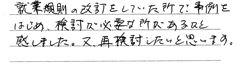 就業規則の改訂をしていた所で事例を
はじめ、検討が必要な所があると
感じました。又、再検討したいと思います。